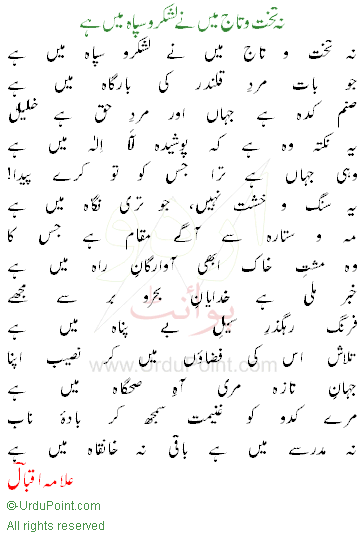 نہ تخت و تاج میں نے لشکر و سپاہ میں ہے
نہ تخت و تاج میں نے لشکر و سپاہ میں ہے
جو بات مردِ قلندر کی بارگاہ میں ہے
صنم کدہ ہے جہاں اور مردِ حق ہے خلیل
یہ نکتہ وہ ہے کہ پوشیدہ لا الٰہ میں ہے
وہی جہاں ہے ترا جس کو تو کرے پیدا!
یہ سنگ و خشت نہیں، جو تری نگاہ میں ہے
مہ و ستارہ سے آگے مقام ہے جس کا
وہ مشتِ خاک ابھی آوارگانِ راہ میں ہے
خبر ملی ہے خدایانِ بحر و بر سے مجھے
فرنگ رہگذرِ سیلِ بے پناہ میں ہے
تلاش اس کی فضاؤں میں کر نصیب اپنا
جہانِ تازہ مری آہِ صبحگاہ میں ہے
مرے کدو کو غنیمت سمجھ کر بادۂ ناب
نہ مدرسے میں ہے باقی نہ خانقاہ میں ہے
علامہ اقبالؔ
© UrduPoint.com
All rights reserved
اردو پوائنٹ
www.UrduPoint.com